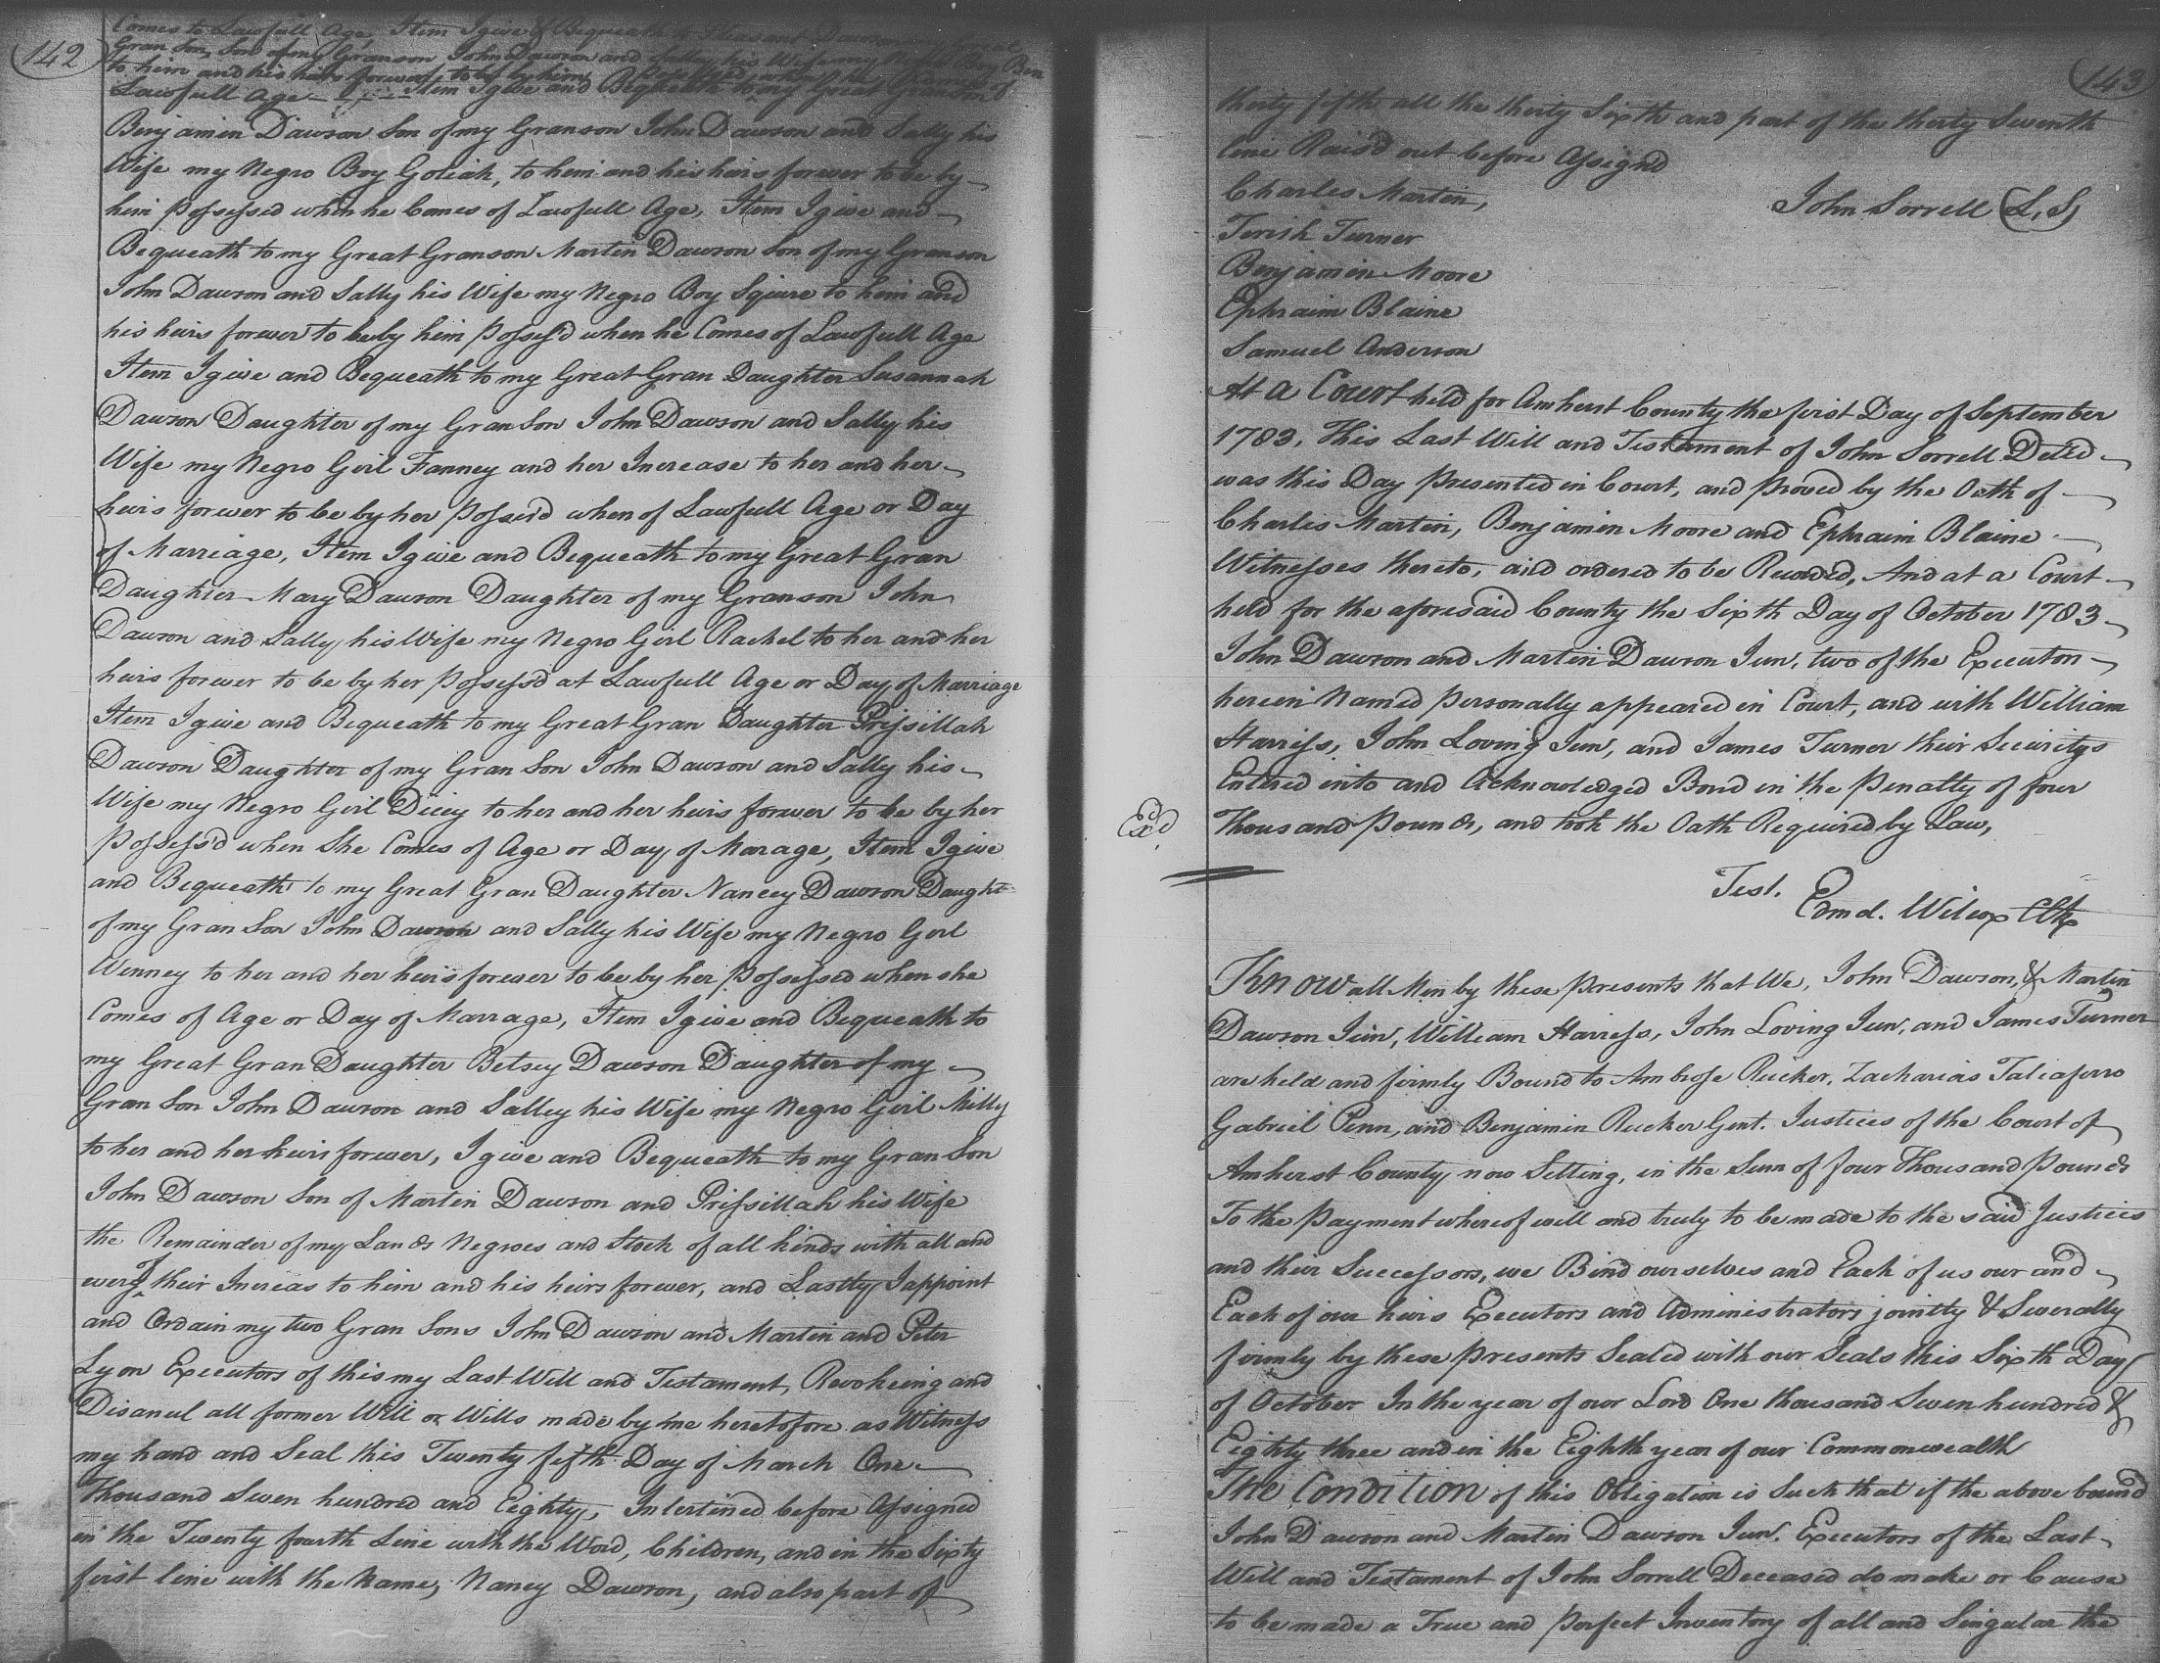 142
Comes to Lawfull Age, Item I give & Bequeath to Pleasant Dawson
Gran Son, Son of my Granson John Dawson and Sally his Wife my Negro Boy Ben
to him and his heirs forever, to be by him Possessed when he Comes of
Lawfull Age Item I give and Bequeath to my Great Granson
Benjamin Dawson Son of my Granson John Dawson and Sally his
Wife my Negro Boy Goliah, to him and his heirs forever to be by
him Possessed when he Comes of Lawfull Age, Item I give and
Bequeath to my Great Granson Martin Dawson Son of my Granson
John Dawson and Sally his Wife my Negro Boy Squire to him and
his heirs forever to be by him Possess'd when he Comes of Lawfull Age
Item I give and Bequeath to my Great Gran Daughter Susannah
Dawson Daughter of my Gran Son John Dawson and Sally his
Wife my Negro Girl Fanney and her Increase to her and her
heirs forever to be by her Possess'd when of Lawfull Age or Day
of Marriage, Item I give and Bequeath to my Great Gran
Daughter Mary Dawson Daughter of my Granson John
Dawson and Sally his Wife my Negro Girl Rachel to her and her
heirs forever to be by her Possess'd at Lawfull Age or Day of Marriage
Item I give and Bequeath to my Great Gran Daughter Prissillah
Dawson Daughter of my Gran Son John Dawson and Sally his
Wife my Negro Girl Dicey to her and her heirs forever to be by her
Possess'd when She Comes of Age or Day of Marage, Item I give
and Bequeath to my Great Gran Daughter Nancey Dawson Daught
of my Gran Son John Dawson and Sally his Wife my Negro Girl
Winney to her and her heirs forever to be by her Possessed when she
Comes of Age or Day of Marrage, Item I give and Bequeath to
my Great Gran Daughter Betsey Dawson Daughter of my
Gran Son John Dawson and Salley his Wife my Negro Girl Milly
to her and her heirs forever, I give and Bequeath to my Gran Son
John Dawson Son of Martin Dawson and Prissillah his Wife
the Remainder of my Lands Negroes and Stock of all kinds with all and
every of their Increas to him and his heirs forever, and Lastly I appoint
and Ordain my two Gran Sons John Dawson and Martin and Peter
Lyon Executors of this my Last Will and Testament, Revokeing and
Disanul all former Will or Wills made by me heretofore as Witness
my hand and Seal this Twenty fifth Day of March One
Thousand Seven hundred and Eighty, Interlined before Assigned
in the Twenty fourth Line with the Word, Children, and in the Sixty
first line with the Name, Nancy Dawson, and also part of
143
thirty fifth all the thirty Sixth and part of the thirty Seventh
line Rais'd out before Assign'd
Charles Martin,
John Sorrell (L.S)
Terish Turner
Benjamin Moore
Ephraim Blaine
Samuel Anderson
At a Court held for Amherst County the first Day of September
1783, This Last Will and Testament of John Sorrell Deced
was this Day Presented in Court, and Proved by the Oath of
Charles Martin, Benjamin Moore and Ephraim Blaine
Witnesses thereto, and ordered to be Recorded, And at a Court
held for the aforesaid County the Sixth Day of October 1783
John Dawson and Martin Dawson Jun, two of the Executors
herein Named Personally appeared in Court, and with William
Harriss, John Loving Jun, and James Turner their Securitys
Entered into and Acknowledged Bond in the Penalty of four
Thousand Pounds, and took the Oath Required by Law,
Ex.d
Test.
Edmd. Wilcox Clk
Know all Men by these Presents that We, John Dawson, & Martin
Dawson Jun, William Harriss, John Loving Jun, and James Turner
are held and firmly Bound to Ambrose Rucker, Zacharias Taliaferro
Gabriel Penn, and Benjamin Rucker Gent. Justices of the Court of
Amherst County now Setting, in the Sum of four Thousand Pounds
To the Payment whereof well and truly to be made to the said Justices
and their Successors, we Bind ourselves and Each of us our and
Each of our heirs Executors and Administrators jointly & Severally
firmly by these Presents Sealed with our Seals this Sixth Day
of October In the year of our Lord One thousand Seven hundred &
Eighty three and in the Eighth year of our Commonwealth
The Condition of this Obligation is Such that if the above bound
John Dawson and Martin Dawson Jun. Executors of the Last
Will and Testament of John Sorrell Deceased do make or Cause
to be made a True and Perfect Inventory of all and Singular the